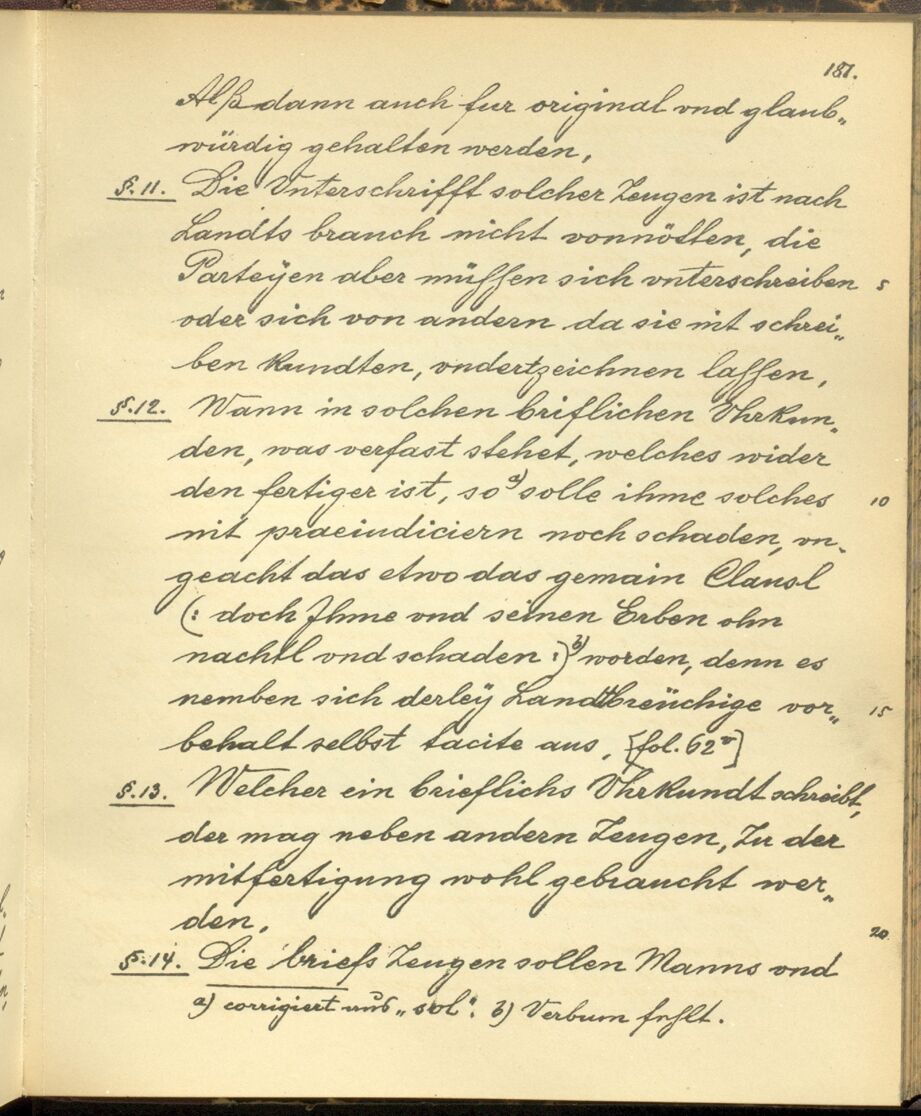 187.
Alß dann auch fur original vnd glaub„
würdig gehalten werden,
§.11. Die Vnterschrifft solcher Zeugen ist nach
Landts brauch nicht vonnötten, die
Parteÿen aber müssen sich vnterschreiben 5
oder sich von andern da sie nit schrei„
ben kundten, vndertzeichnen lassen,
§.12. Wann in solchen briflichen Vhrkun„
den, was verfast stehet, welches wider
den fertiger ist, so a) solle ihme solches 10
nit praeiudiciern noch schaden, vn„
geacht das etwo das gemain Clausl
(: doch Ihme vnd seinen Erben ohn
nachtl vnd schaden :) b) worden, denn es
nemben sich derleÿ Landtbreüchige vor„ 15
behalt selbst tacite aus, [fol. 62v]
§.13. Welcher ein brieflichs Vhrkundt schreibt,
der mag neben andern Zeugen, Zu der
mitfertigung wohl gebraucht wer„
den, 20
§.14. Die briefs Zeugen sollen Manns vnd
a) corrigiert aus „sol“. b) Verbum fehlt.